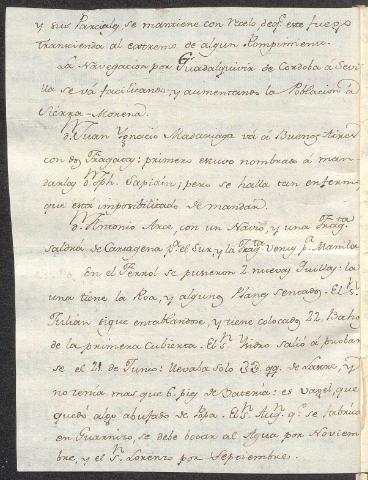 y sus Parciales, se mantiene con recelo de q.e este fuego
transcienda al extremo de algun Rompimiento.
La Navegacion por Guadalquivir de Cordoba à Sevi
lla se va facilitando, y aumentando la Poblacion à
Sierra-Morena.
D.n Juan Ignacio Madariaga và à Buenos Aires
con dos Fragatas: primero estuvo nombrado à man
darlas D.n Jph. Sapiain; pero se halla tan enfermo
que está imposibilitado de mandar.
D.n Antonio Arce, con un Navio, y una Frag.ta
saldrà de Cartagena p.a el Sur, y la Frag.ta Venus p.a Manila
En el Ferrol se pusieron 2 nuevas Quillas: la
una tiene la Roa, y algunos Planes sentados. El S.n
Julian sigue entablandose, y tiene colocados 22. Bahos
de la primera Cubierta. El S.n Isidro saliò à probar
se el 21 de Junio: llevaba solo 33 qq. de Lastre, y
no tenia mas que 6. pies de Bateria: es vagel, que
quedò algo abufado de Popa. El S.n Aug.n q.e se fabricò
en Guarnizo, se debe botar al Agua por Noviem
bre, y el S.n Lorenzo por Septiembre.